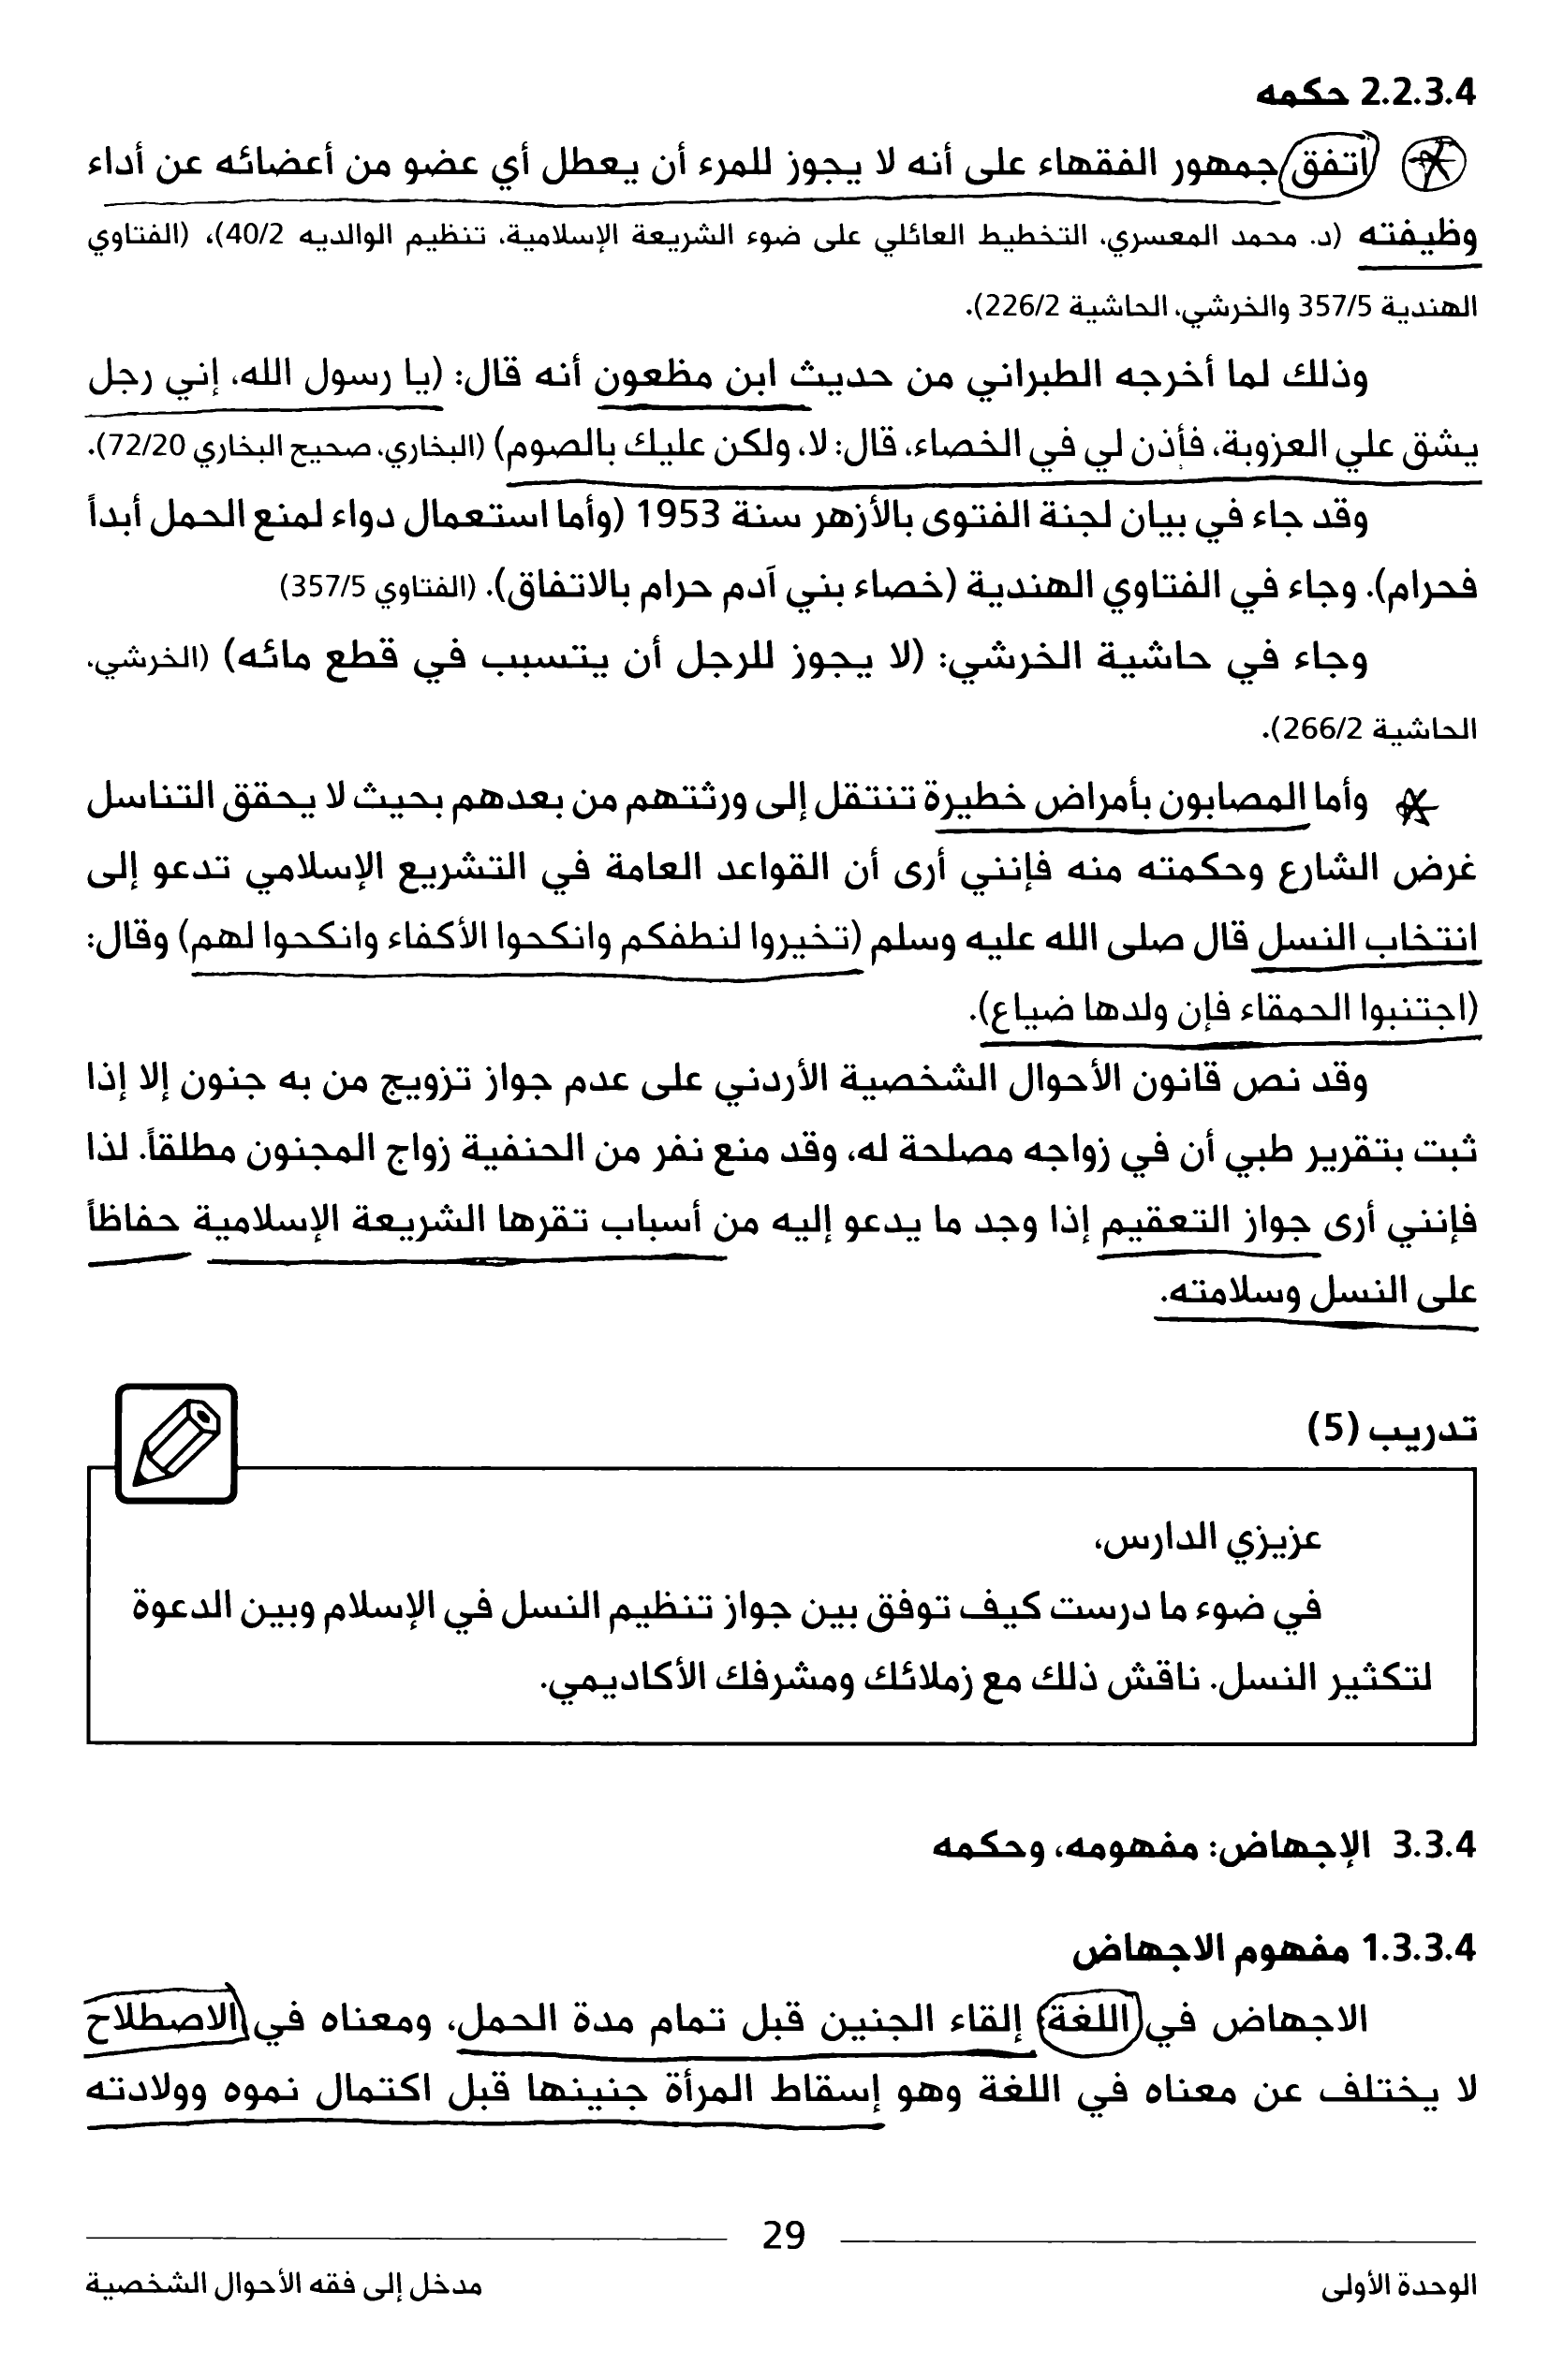 2.2.3.4 حكمه
اتفق جمهور الفقهاء على أنه لا يجوز للمرء أن يعطل أي عضو من أعضائه عن أداء
وظيفته (د. محمد المعسري، التخطيط العائلي على ضوء الشريعة الإسلامية، تنظيم الوالديه 40/2)، (الفتاوي
الهندية 357/5 والخرشي، الحاشية 226/2).
وذلك لما أخرجه الطبراني من حديث ابن مظعون أنه قال: (يا رسول الله، إني رجل
يشق علي العزوبة، فأذن لي في الخصاء، قال: لا، ولكن عليك بالصوم) (البخاري، صحيح البخاري 72/20).
وقد جاء في بيان لجنة الفتوى بالأزهر سنة 1953 (وأما استعمال دواء لمنع الحمل أبداً
فحرام). وجاء في الفتاوي الهندية (خصاء بني آدم حرام بالاتفاق). (الفتاوي 357/5)
وجاء في حاشية الخرشي: (لا يجوز للرجل أن يتسبب في قطع مائه) (الخرشي،
الحاشية 266/2).
وأما المصابون بأمراض خطيرة تنتقل إلى ورثتهم من بعدهم بحيث لا يحقق التناسل
غرض الشارع وحكمته منه فإنني أرى أن القواعد العامة في التشريع الإسلامي تدعو إلى
انتخاب النسل قال صلى الله عليه وسلم (تخيروا لنطفكم وانكحوا الأكفاء وانكحوا لهم) وقال:
(اجتنبوا الحمقاء فإن ولدها ضياع).
وقد نص قانون الأحوال الشخصية الأردني على عدم جواز تزويج من به جنون إلا إذا
ثبت بتقرير طبي أن في زواجه مصلحة له، وقد منع نفر من الحنفية زواج المجنون مطلقاً. لذا
فإنني أرى جواز التعقيم إذا وجد ما يدعو إليه من أسباب تقرها الشريعة الإسلامية حفاظاً
على النسل وسلامته.
تدريب (5)
عزيزي الدارس،
في ضوء ما درست كيف توفق بين جواز تنظيم النسل في الإسلام وبين الدعوة
لتكثير النسل. ناقش ذلك مع زملائك ومشرفك الأكاديمي.
3.3.4 الإجهاض: مفهومه، وحكمه
1.3.3.4 مفهوم الاجهاض
الاجهاض في اللغة: إلقاء الجنين قبل تمام مدة الحمل، ومعناه في الاصطلاح
لا يختلف عن معناه في اللغة وهو إسقاط المرأة جنينها قبل اكتمال نموه وولادته
29
الوحدة الأولى
مدخل إلى فقه الأحوال الشخصية